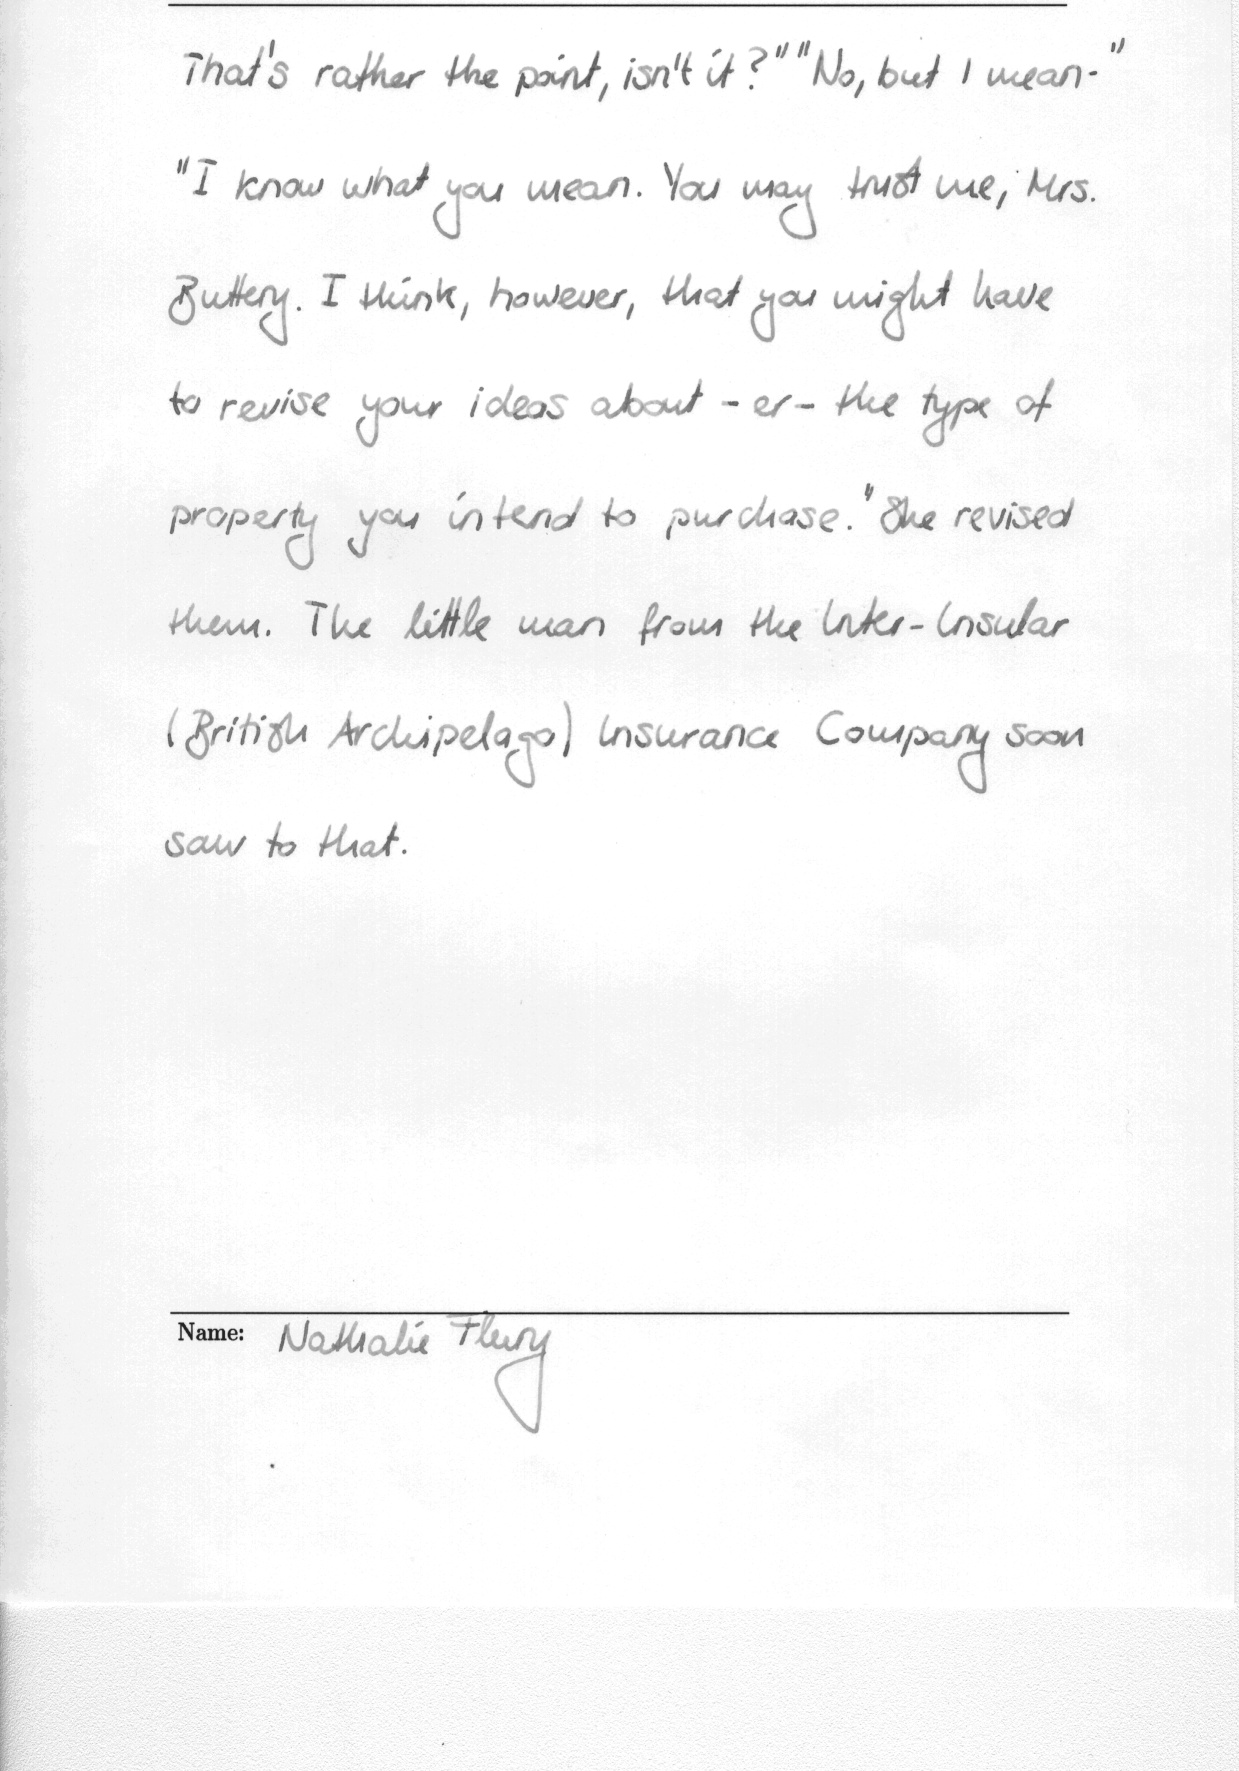 That's rather the point, isn't it?" "No, but I mean-"
"I know what you mean. You may trust me, Mrs.
Buttery. I think, however, that you might have
to revise your ideas about - er - the type of
property you intend to purchase." She revised
them. The little man from the Inter-Insular
(British Archipelago) Insurance Company soon
saw to that.
Name: Nathalie Flury